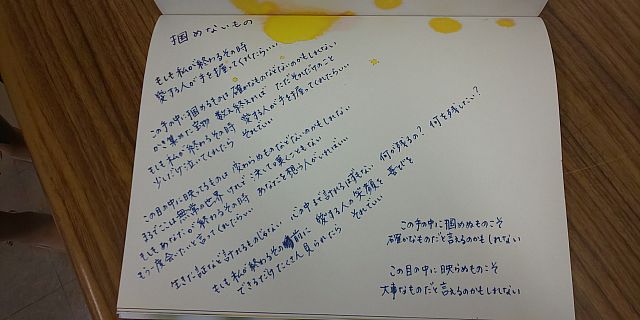 掴めないもの
もしも私が終わるその時
愛する人が手を握ってくれたらいい
この手の中に掴めるものは 確かなものなどないのかもしれない
かき集めた宝物 数え終えれば ただそれだけのこと
もしも私が終わるその時 愛する人が手を握ってくれたら
少しだけ泣いてくれたら それでいい
この目の中に映ってるものは 変わらぬものなどないのかもしれない
まるでここは無常の世界 けれど 決して嘆くこともない
もしもあなたが終わるその時 あなたを想う人がいればいい
もう一度会いたいと言ってくれたらいい
生きた証など計れるものじゃない 心の中まで計れる理もない 何が残るの? 何を残したい?
もしも私が終わるその時 前に 愛する人の笑顔を 喜びを
できるだけたくさん見られたら それでいい
この手の中に掴めぬものこそ
確かなものだと言えるのかもしれない
この目の中に映らぬものこそ
大事なものだと言えるのかもしれない